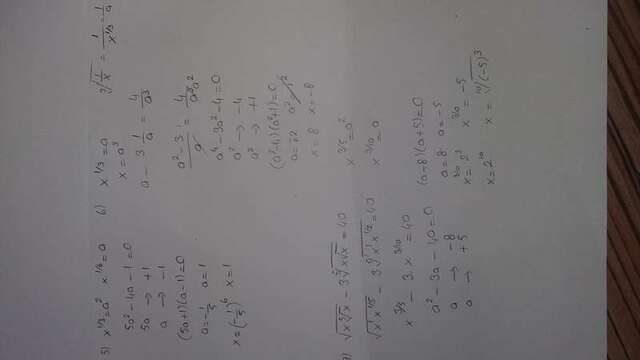 5) x^1/3 = a² x^1/6 = a
5a² - 4a - 1 = 0
5a → +1
a → -1
(5a+1)(a-1) = 0
a = -1/5 a = 1
x = (-1/5)^6 x = 1
6) x^1/3 = a ³√(1/x) = 1/x^1/3 = 1/a
x = a³
a - 3·1/a = 4/a³
(a²-3)/a = 4/a³ a²
a⁴ - 3a² - 4 = 0
a² → -4
a² → +1
(a²-4)(a²+1) = 0
a = ±2
x = 8 x = -8
√(x ⁵√x) - 3 ⁵√(x√x) = 40 x^3/5 = a²
√(x¹ x^1/5) - 3 ⁵√(x¹ x^1/2) = 40 x^3/10 = a
x^3/5 - 3. x^3/10 = 40
a² - 3a - 40 = 0
a → -8
a → +5
(a-8)(a+5) = 0
a = 8 a = -5
x^3/10 = 2³ x^3/10 = -5
x = 2^10